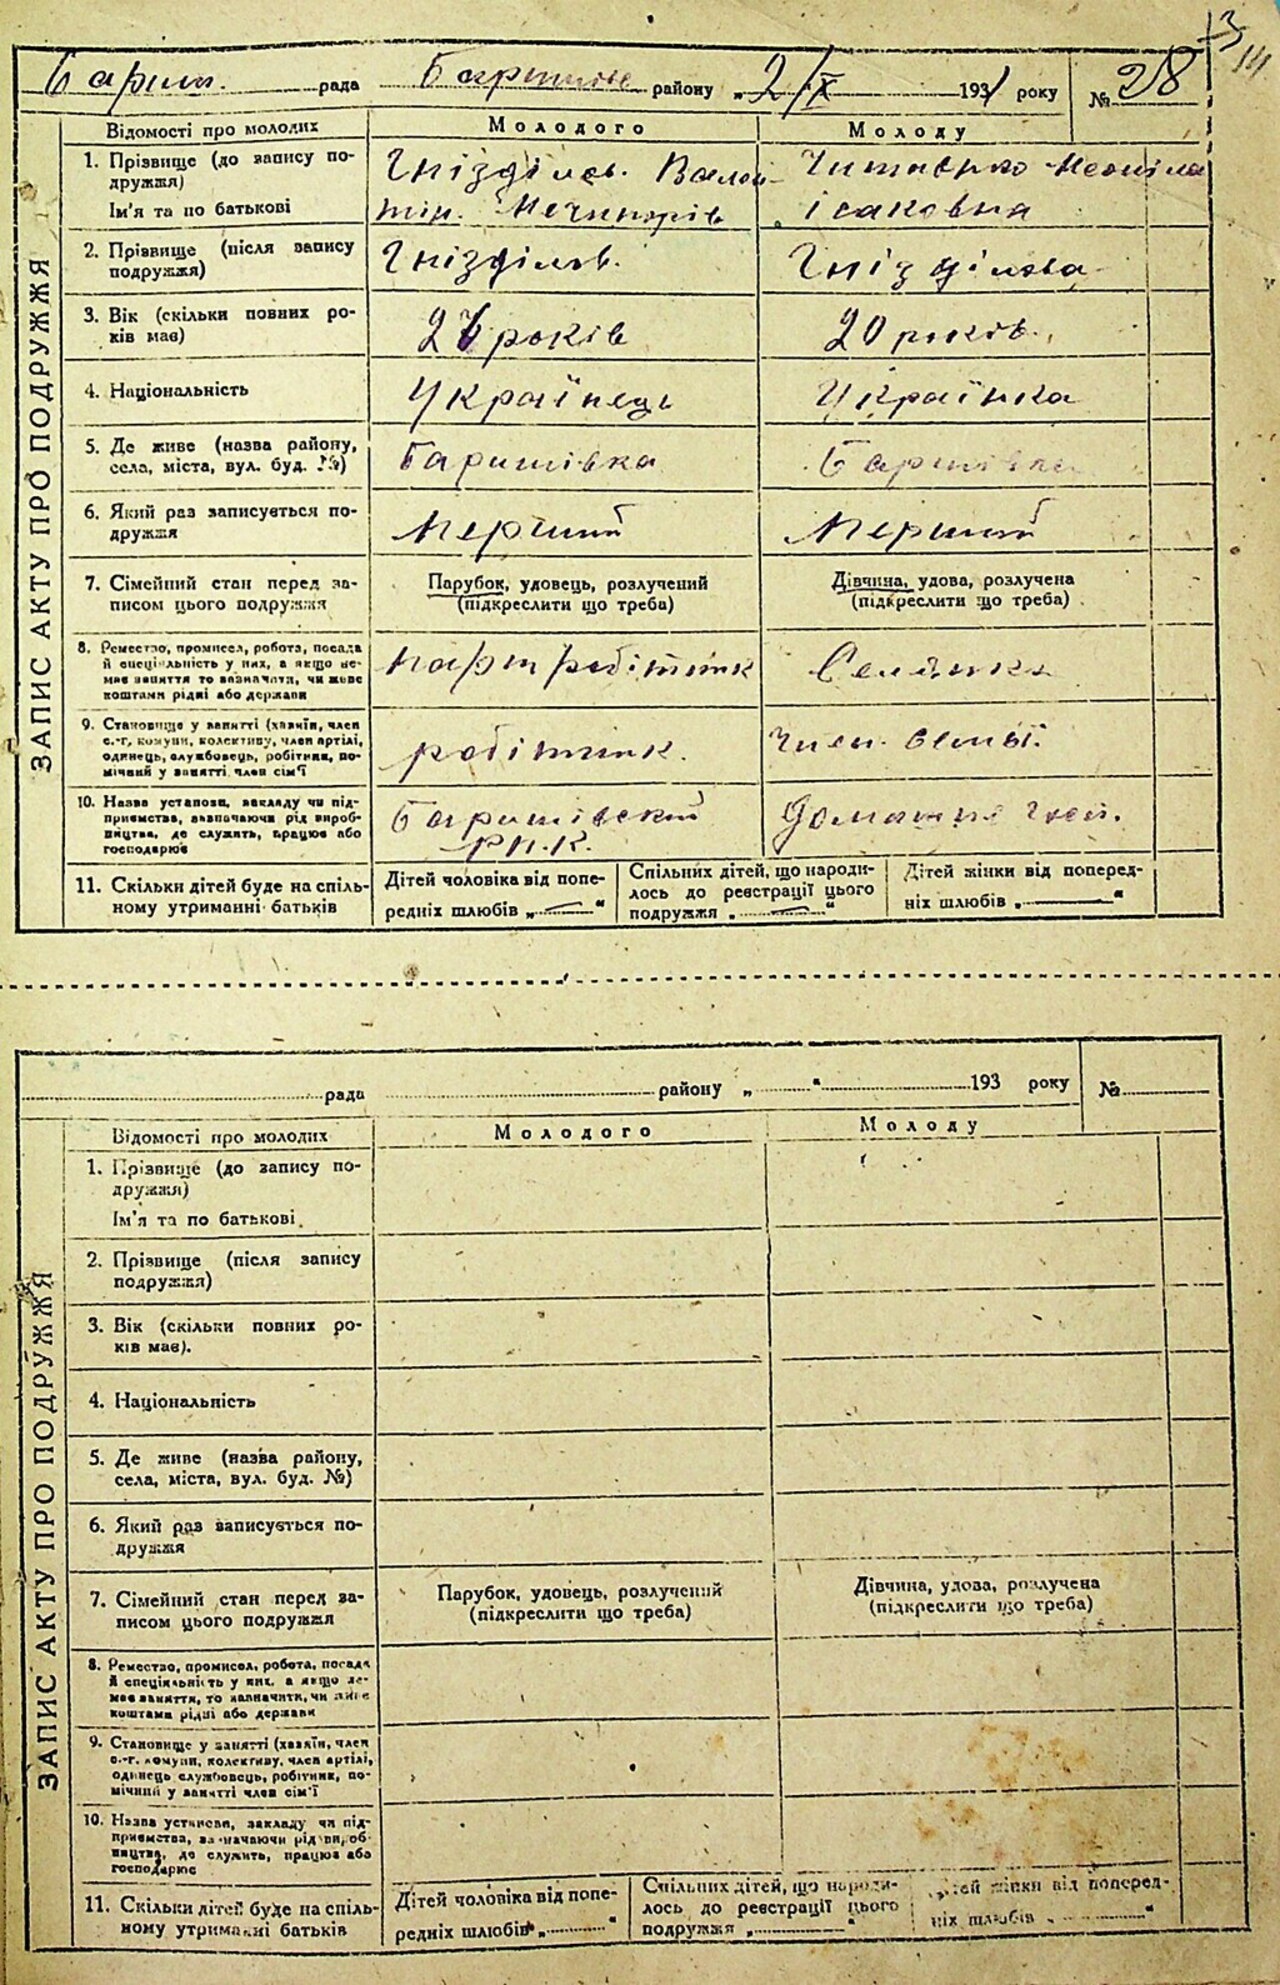 3
14
Бариш. рада Баришівс району „2/IX 1931 року № 28
ЗАПИС АКТУ ПРО ПОДРУЖЖЯ
Відомості про молодих Молодого Молоду
1. Прізвище (до запису по-
дружжя)
Ім'я та по батькові
Гнізділов. Вален-
тин. Мечипорів
Ісаковна
2. Прізвище (після запису
подружжя)
Гнізділов.
Гнізділова
3. Вік (скільки повних ро-
ків має)
років
20 років.
4. Національність
Українець
Українка
5. Де живе (назва району,
села, міста, вул. буд. №)
Баришівка
Баришівка
6. Який раз записується по-
дружжя
Перший
Перший
7. Сімейний стан перед за-
писом цього подружжя
Парубок, удовець, розлучений
(підкреслити що треба)
Дівчина, удова, розлучена
(підкреслити що треба)
8. Ремество, промисел, робота, посада
й спеціяльність у них, а якщо не-
має заняття то зазначати, чи живе
коштами рідні або держави
парт робітник
Селянка
9. Становище у занятті (хазяїн, член
с.-г. комуни, колективу, член артілі,
одинець, службовець, робітник, по-
мічний у занятті член сім'ї
робітник.
Член. семьї.
10. Назва установи, закладу чи під-
приємства, зазначаючи рід вироб-
ництва, де служить, працює або
господарює
Баришівский
р.п.к.
Домашнє
11. Скільки дітей буде на спіль-
ному утриманні батьків
Дітей чоловіка від попе-
редніх шлюбів „—“
Спільних дітей, що народи-
лось до реєстрації цього
подружжя „—“
Дітей жінки від поперед-
ніх шлюбів „—“
рада району „ “ 193 року №
ЗАПИС АКТУ ПРО ПОДРУЖЖЯ
Відомості про молодих Молодого Молоду
1. Прізвище (до запису по-
дружжя)
Ім'я та по батькові
2. Прізвище (після запису
подружжя)
3. Вік (скільки повних ро-
ків має).
4. Національність
5. Де живе (назва району,
села, міста, вул. буд. №)
6. Який раз записується по-
дружжя
7. Сімейний стан перед за-
писом цього подружжя
Парубок, удовець, розлучений
(підкреслити що треба)
Дівчина, удова, розлучена
(підкреслити що треба)
8. Ремество, промисел, робота, посада
й спеціяльність у них, а якщо не-
має заняття, то зазначити, чи живе
коштами рідні або держави
9. Становище у занятті (хазяїн, член
с.-г. комуни, колективу, член артілі,
одинець службовець, робітник, по-
мічний у занятті член сім'ї
10. Назва установи, закладу чи під-
приємства, зазначаючи рід вироб-
ництва, де служить, працює або
господарює
11. Скільки дітей буде на спіль-
ному утриманні батьків
Дітей чоловіка від попе-
редніх шлюбів „ “
Спільних дітей, що народи-
лось до реєстрації цього
подружжя „ “
Дітей жінки від поперед-
ніх шлюбів „ “